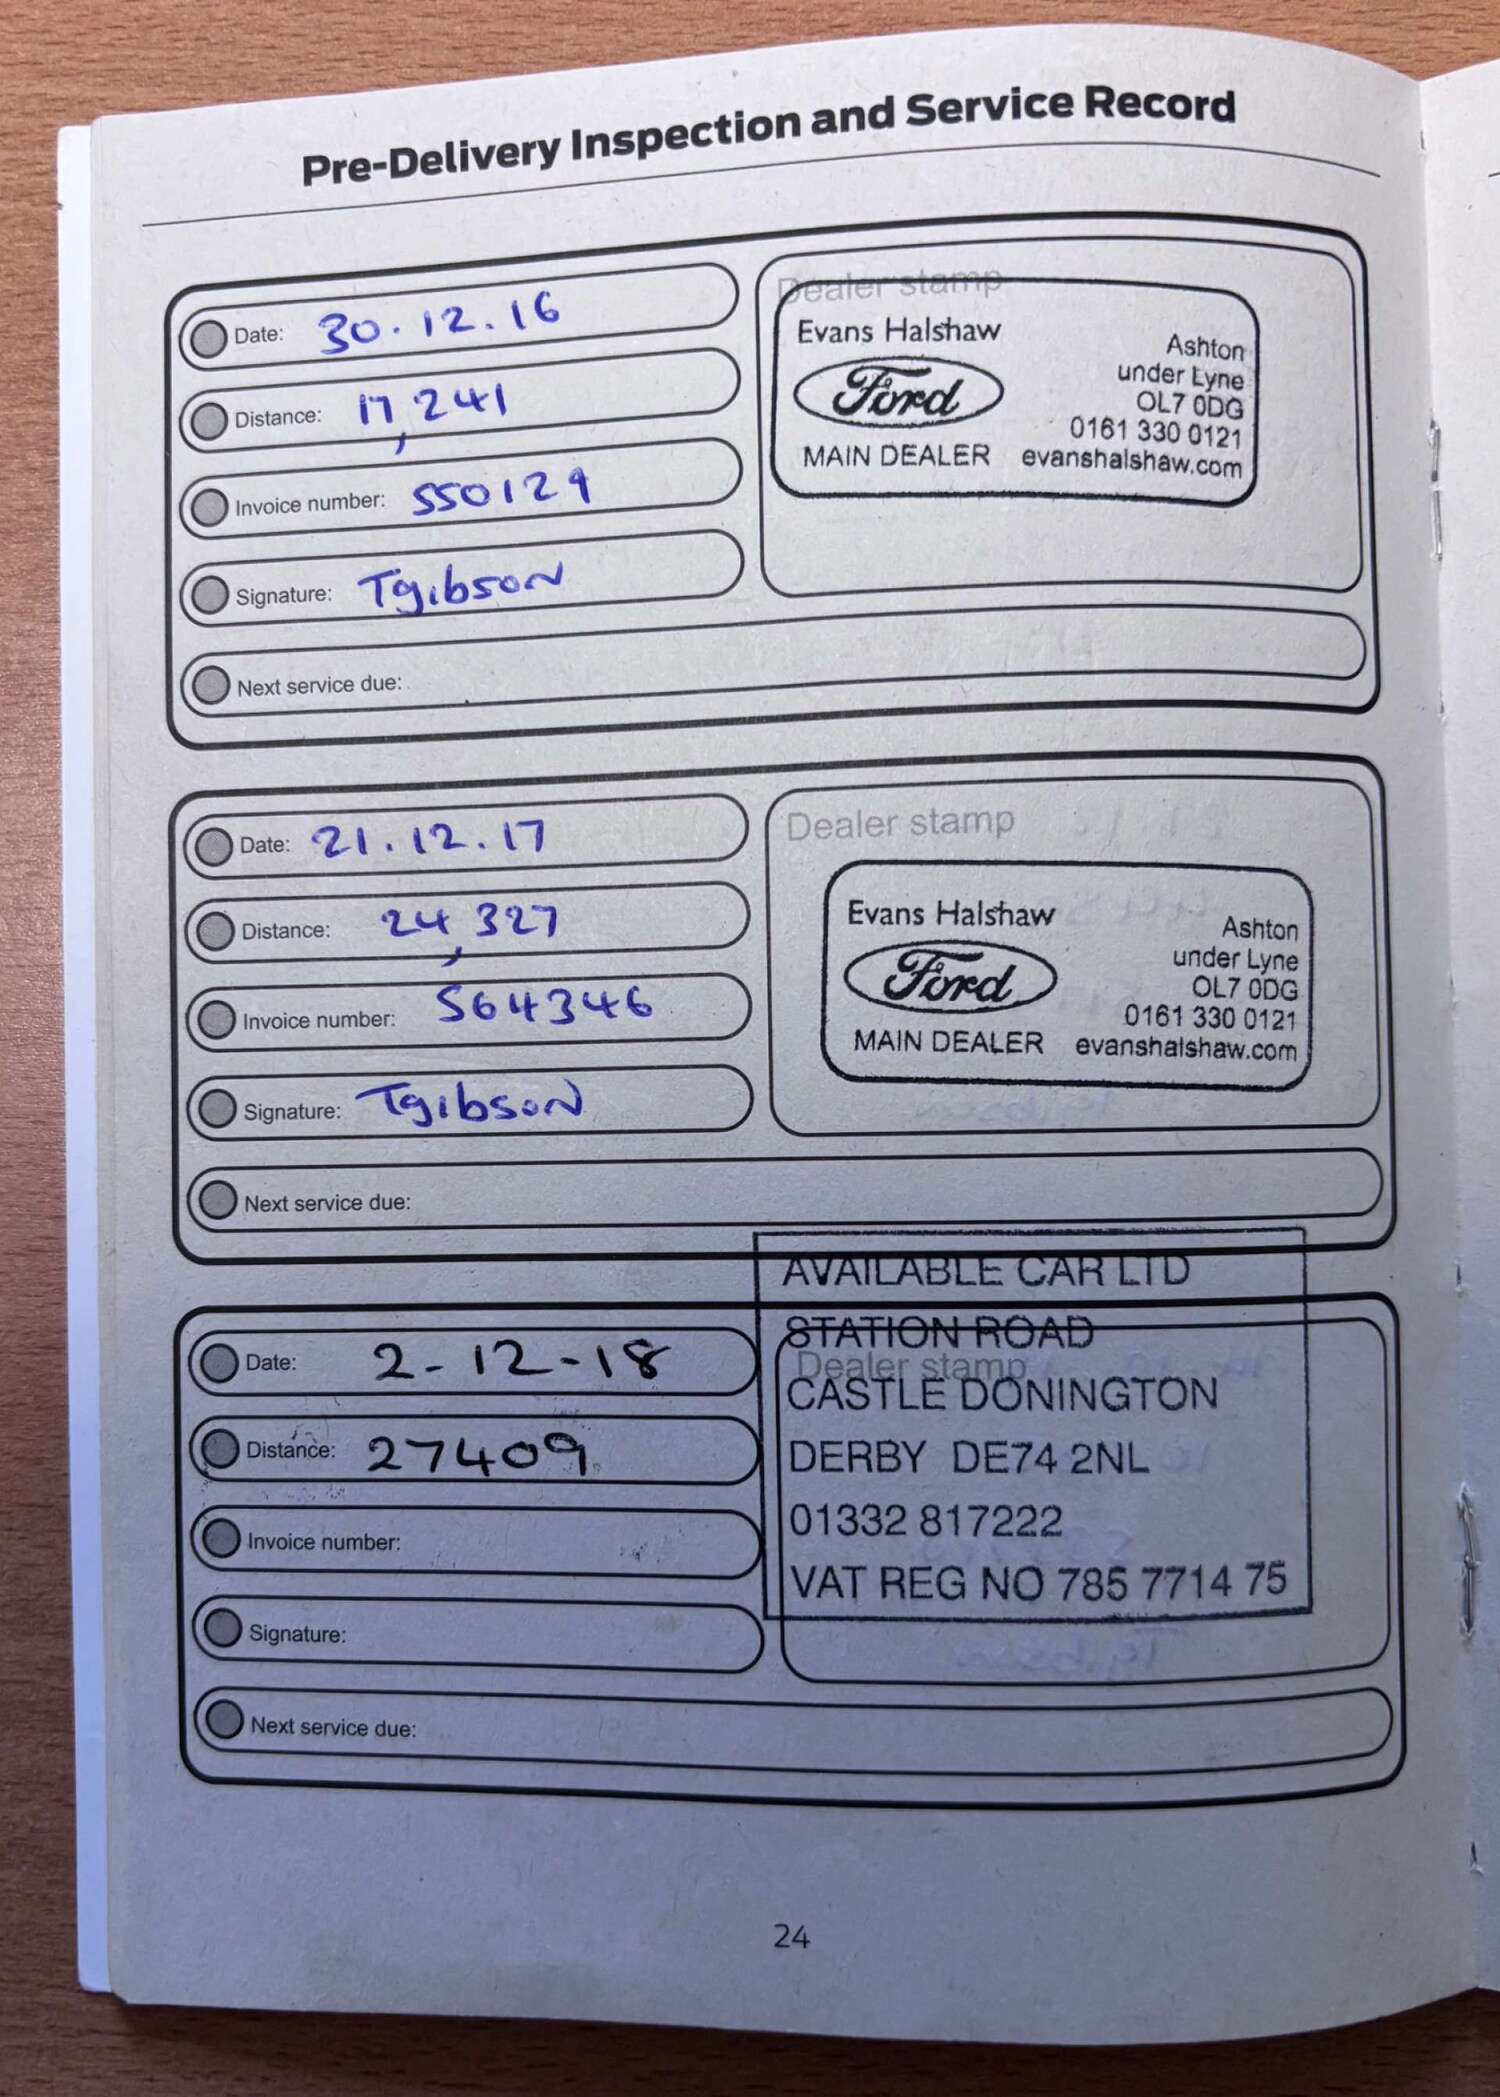 Pre-Delivery Inspection and Service Record
Date: 30.12.16
Distance: 17,241
Invoice number: 550129
Signature: Tgibson
Next service due:
Dealer stamp
Evans Halshaw
Ford
MAIN DEALER
Ashton
under Lyne
OL7 0DG
0161 330 0121
evanshalshaw.com
Date: 21.12.17
Distance: 24,327
Invoice number: 564346
Signature: Tgibson
Next service due:
Dealer stamp
Evans Halshaw
Ford
MAIN DEALER
Ashton
under Lyne
OL7 0DG
0161 330 0121
evanshalshaw.com
Date: 2-12-18
Distance: 27409
Invoice number:
Signature:
Next service due:
Dealer stamp
AVAILABLE CAR LTD
STATION ROAD
CASTLE DONINGTON
DERBY DE74 2NL
01332 817222
VAT REG NO 785 7714 75
24